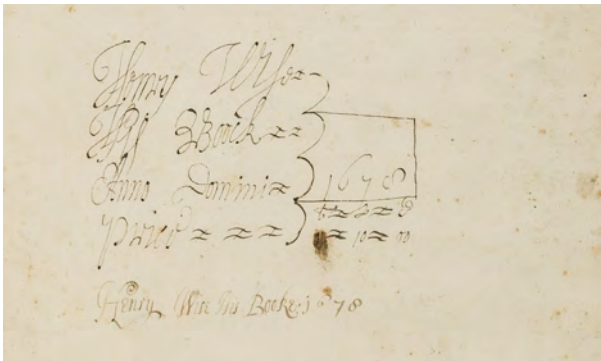 Henry Wise
His Boock
Anno Domini 1678
price
Henry Wise his Booke 1678